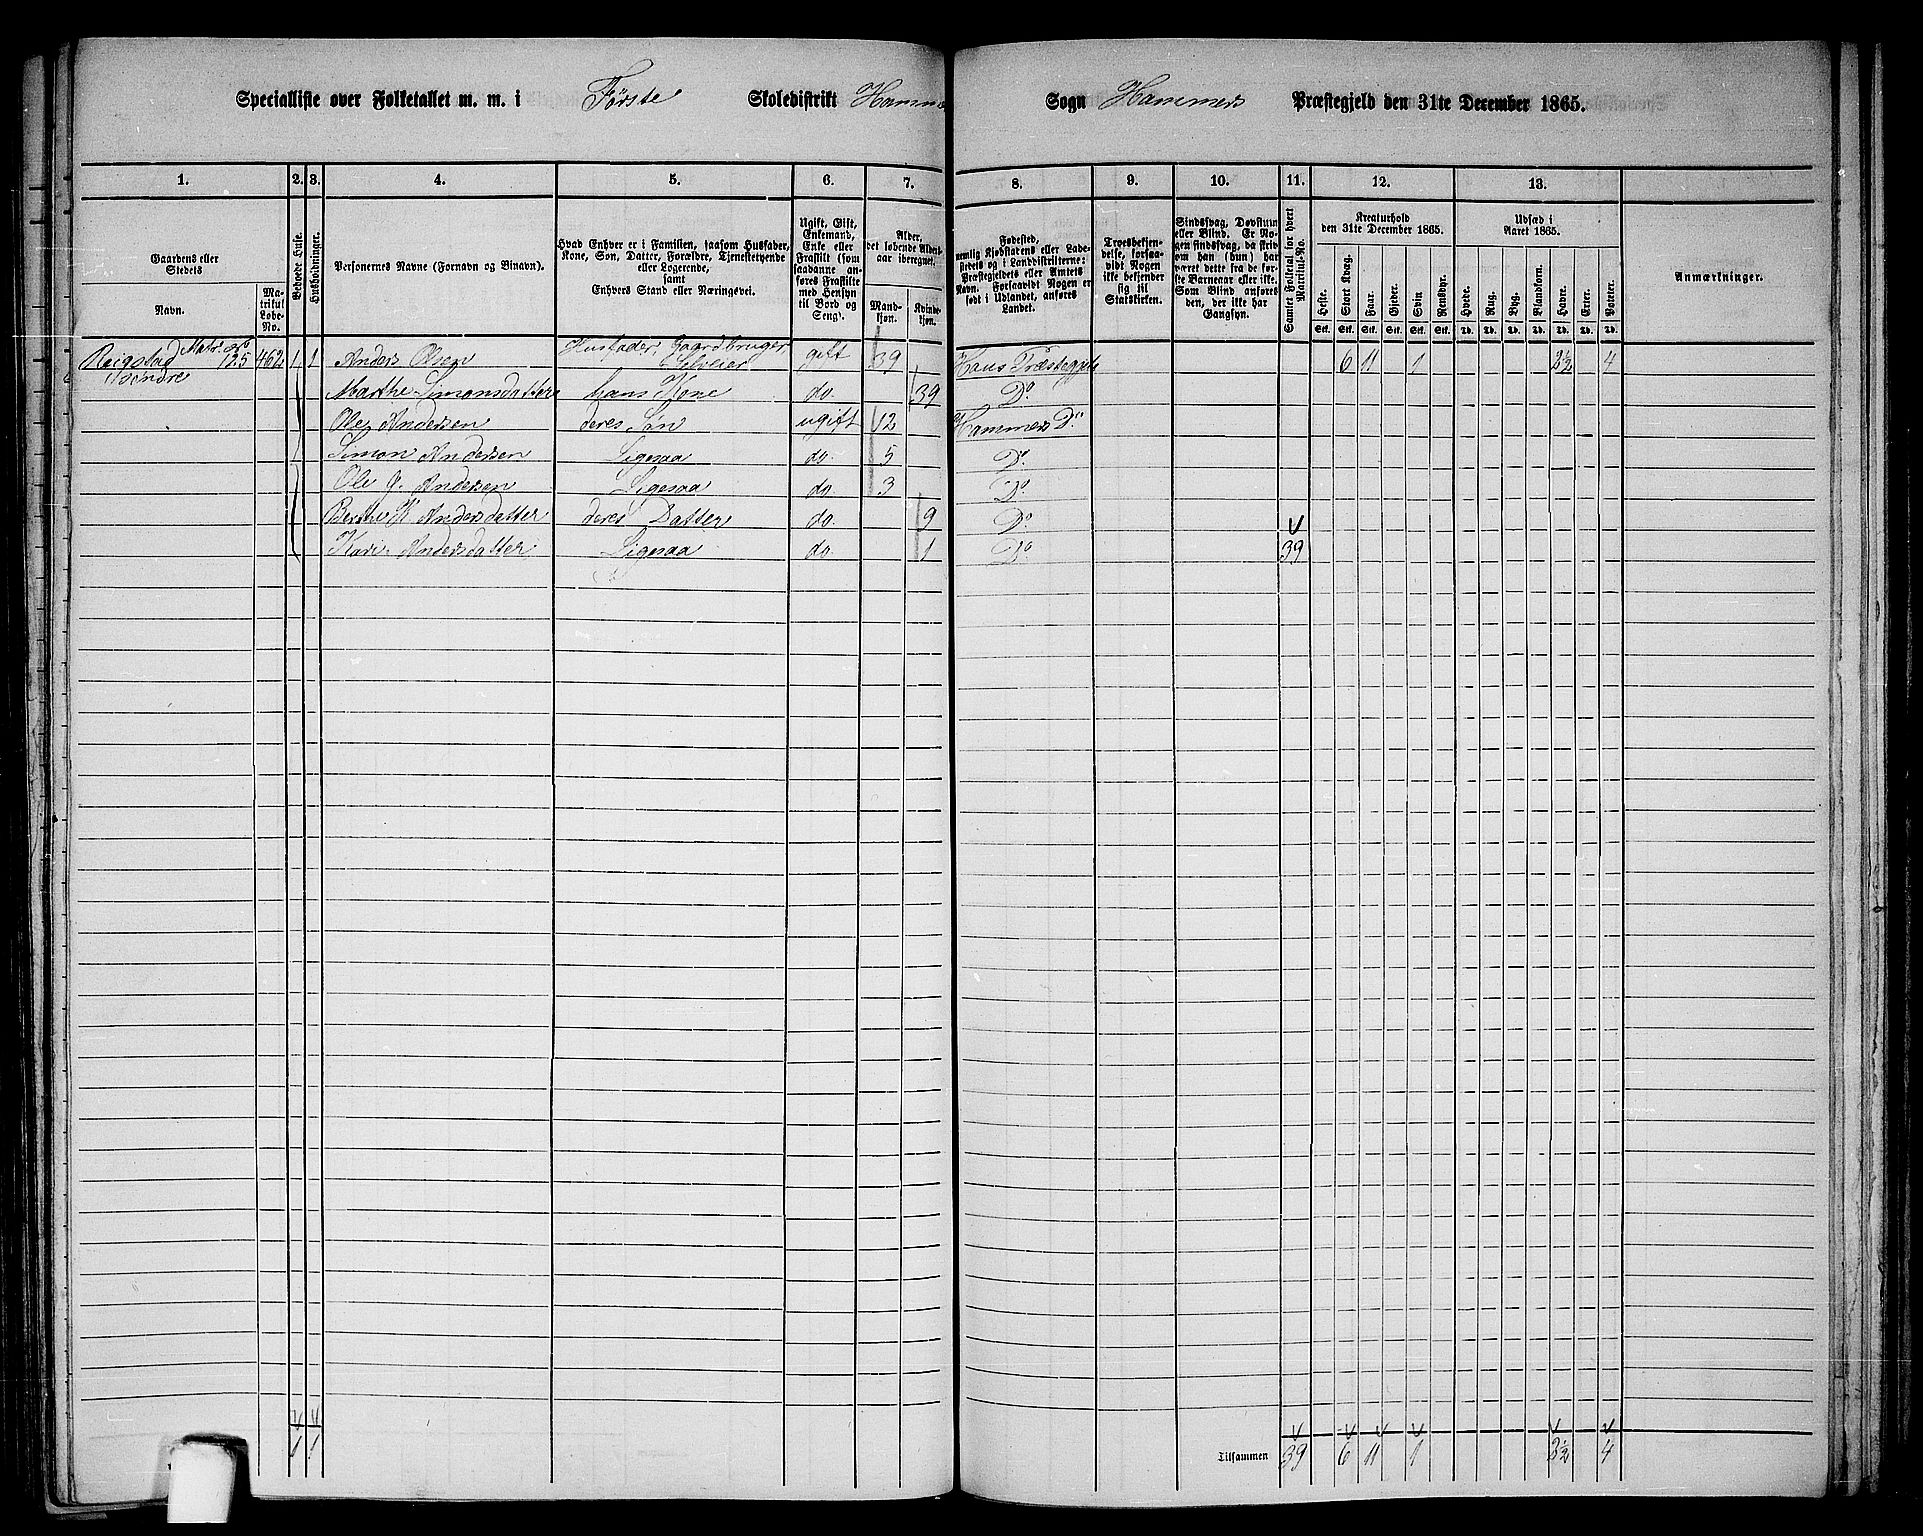 Specialliste over Folketallet m. m. i Første Skoledistrikt Hammer Sogn Hammers Præstegjeld den 31te December 1865.
1. 2. 3. 4. 5. 6. 7. 8. 9. 10. 11. 12. 13.
Gaardens eller Stedets
Navn.
Matrikul Løbe-No.
Beboede Huse.
Husholdninger.
Personernes Navne (Fornavn og Binavn).
Hvad Enhver er i Familien, saasom Husfader, Kone, Søn, Datter, Forældre, Tjenestetyende eller Logerende, samt Enhvers Stand eller Næringsvei.
Ugift, Gift, Enkemand, Enke eller Fraskilt (som saadanne anføres Fraskilte med Hensyn til Bord og Seng).
Alder, det løbende Alders-aar iberegnet.
Mandkjøn. Kvindekjøn.
Fødested, nemlig Kjøbstadens eller Ladestedets og i Landdistrikterne: Præstegjeldets eller Amtets Navn. Forsaavidt Nogen er født i Udlandet, anføres Landet.
Troesbekjendelse, forsaavidt Nogen ikke bekjender sig til Statskirken.
Sindssvag, Døvstum eller Blind. Er Nogen sindssvag, da skrives om han (hun) har været dette fra de første Barneaar eller ikke. Som Blind anføres den, der ikke har Gangsyn.
Samlet Folketal for hvert Matrikul-No.
Kreaturhold den 31te December 1865.
Heste. Stort Kvæg. Faar. Gjeder. Svin Rensdyr.
Udsæd i Aaret 1865.
Hvede. Rug. Byg. Blandkorn. Havre. Erter. Poteter.
Anmærkninger.
Stk. Stk. Stk. Stk. Stk. Stk. Td. Td. Td. Td. Td. Td. Td.
Matr. No 125 462 1 1 Anders Olsen Husfader, Gaardbruger Selveier gift 39 Haus Præstegjeld 6 11 1 2½ 4
Søndre Marthe Simonsdatter hans Kone do. 39 Do.
Ole Andersen deres Søn ugift 12 Hammers Do.
Simon Andersen Ligesaa do. 5 Do.
Ole J. Andersen Ligesaa do 3 Do.
Berthe K Andersdatter deres Datter do. 9 Do.
Kari Andersdatter Ligesaa do 1 Do 39
1 1 Tilsammen 39 6 11 1 2½ 4